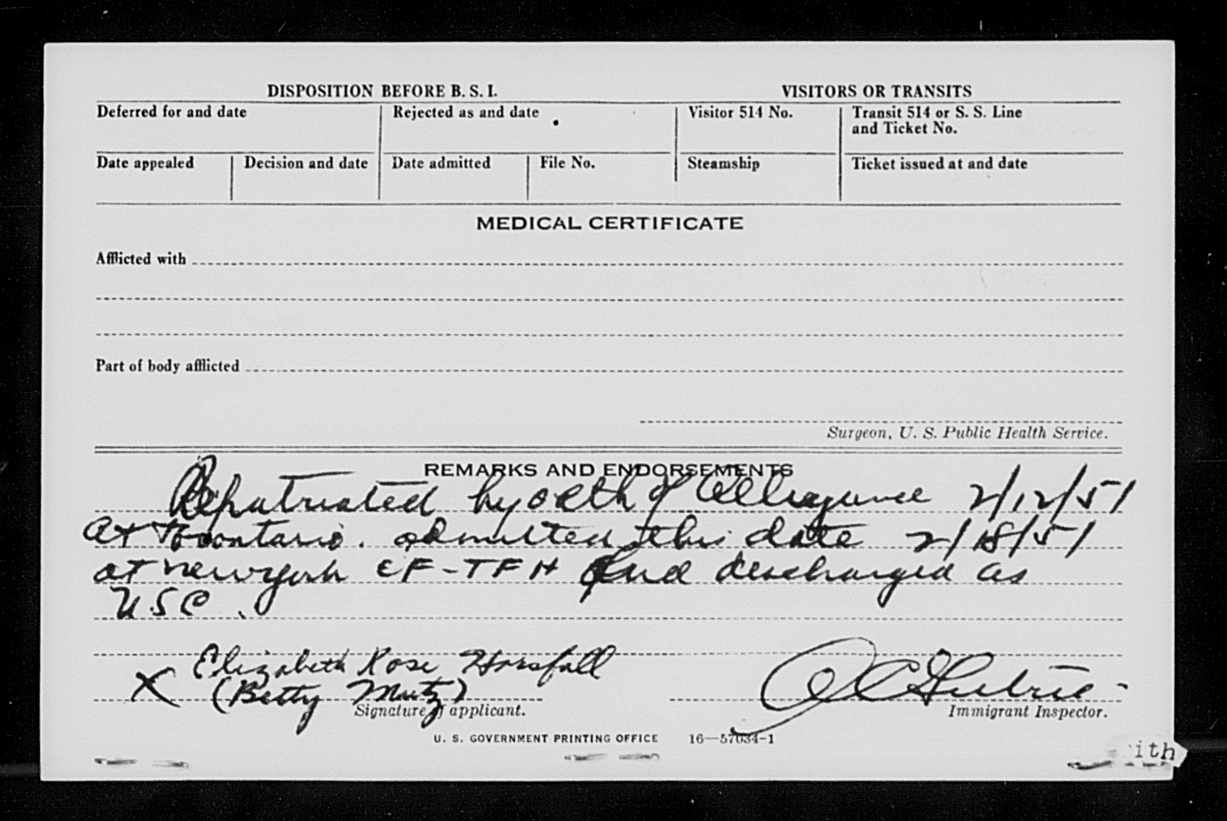 DISPOSITION BEFORE B. S. I.
VISITORS OR TRANSITS
Deferred for and date
Rejected as and date
Visitor 514 No.
Transit 514 or S. S. Line
and Ticket No.
Date appealed
Decision and date
Date admitted
File No.
Steamship
Ticket issued at and date
MEDICAL CERTIFICATE
Afflicted with
Part of body afflicted
Surgeon, U. S. Public Health Service.
REMARKS AND ENDORSEMENTS
Repatriated by oath of Allegiance 2/12/51
at admitted this date 2/18/51
at New York EF-TFH and discharged as
USC.
X Elizabeth Rose Horsfall
(Betty Mutz)
Signature of applicant.
Immigrant Inspector.
U. S. GOVERNMENT PRINTING OFFICE 16—57034-1
ith